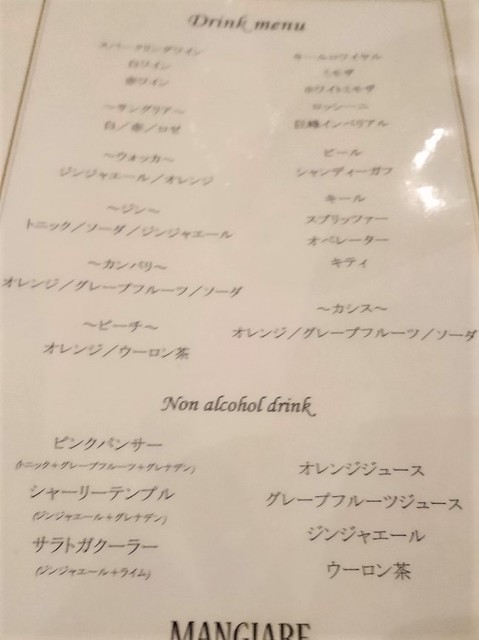 Drink menu
スパークリングワイン
白ワイン
赤ワイン
~サングリア~
白/赤/ロゼ
~ウォッカ~
ジンジャエール/オレンジ
~ジン~
トニック/ソーダ/ジンジャエール
~カンパリ~
オレンジ/グレープフルーツ/ソーダ
~ピーチ~
オレンジ/ウーロン茶
キールロワイヤル
ミモザ
ホワイトミモザ
ロッシーニ
巨峰インペリアル
ビール
シャンディーガフ
キール
スプリッツァー
オペレーター
キティ
~カシス~
オレンジ/グレープフルーツ/ソーダ
Non alcohol drink
ピンクパンサー
(トニック+グレープフルーツ+グレナデン)
シャーリーテンプル
(ジンジャエール+グレナデン)
サラトガクーラー
(ジンジャエール+ライム)
オレンジジュース
グレープフルーツジュース
ジンジャエール
ウーロン茶
MANGIARE